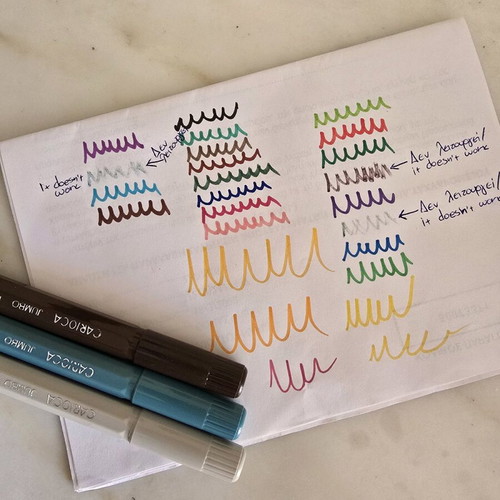 Δεν
λειτουργεί
It doesn't
work
Δεν λειτουργεί/
it doesn't work
Δεν λειτουργεί/
it doesn't work
CARIOCA JUMBO
CARIOCA JUMBO
CARIOCA JUMBO